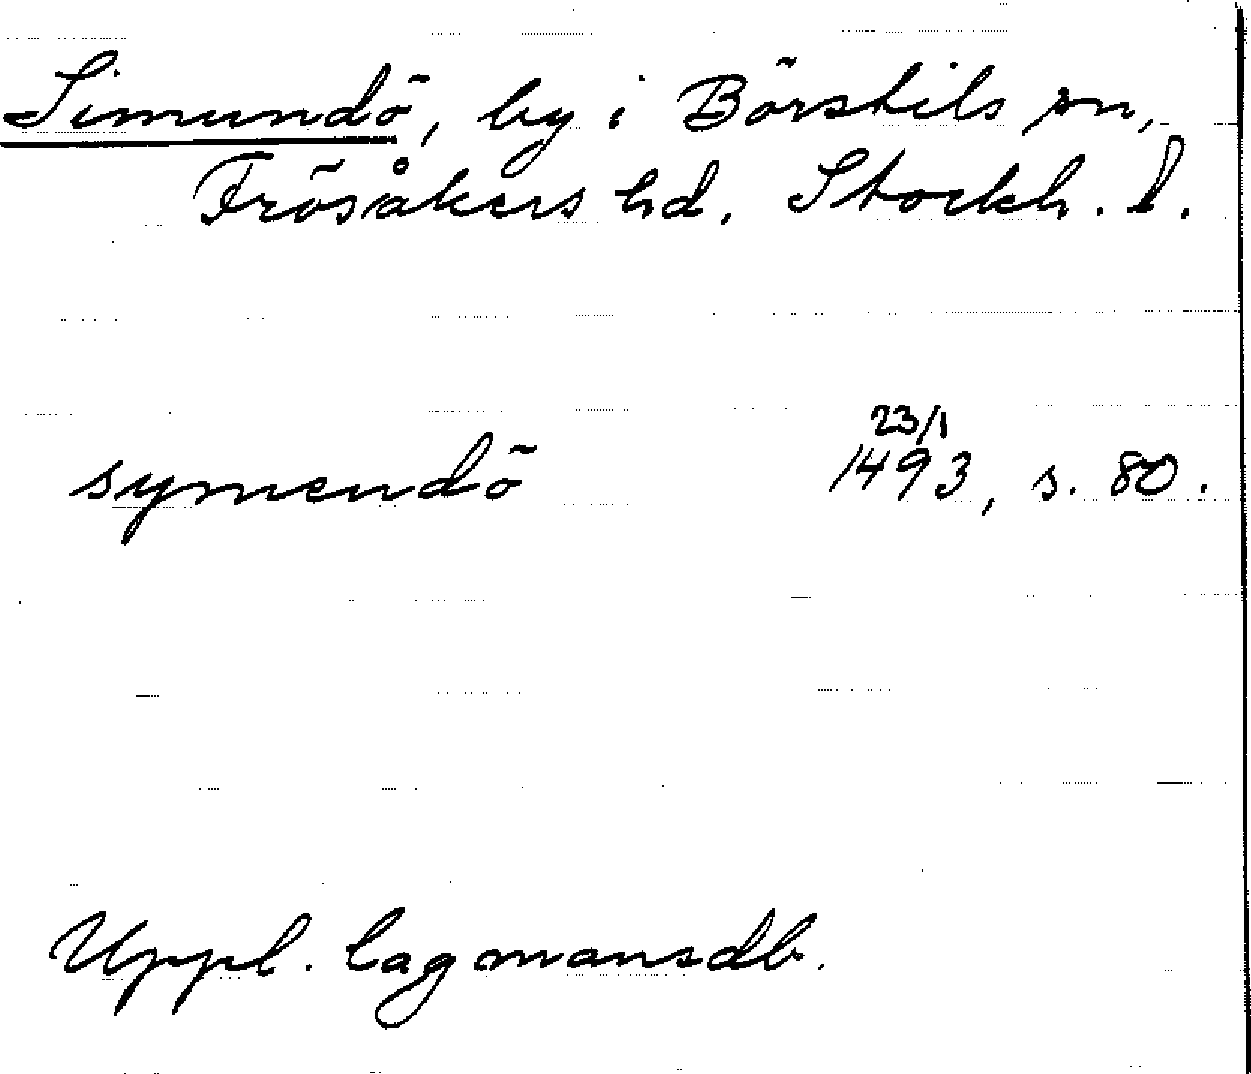 Simundö, by i Börstils sn,
Frösåkers hd. Stockh. l.
23/1
symendö 1493, s. 80.
Uppl. lagmansdb.